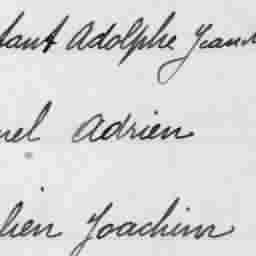 tant Adolphe Jean
nel Adrien
lien Joachim